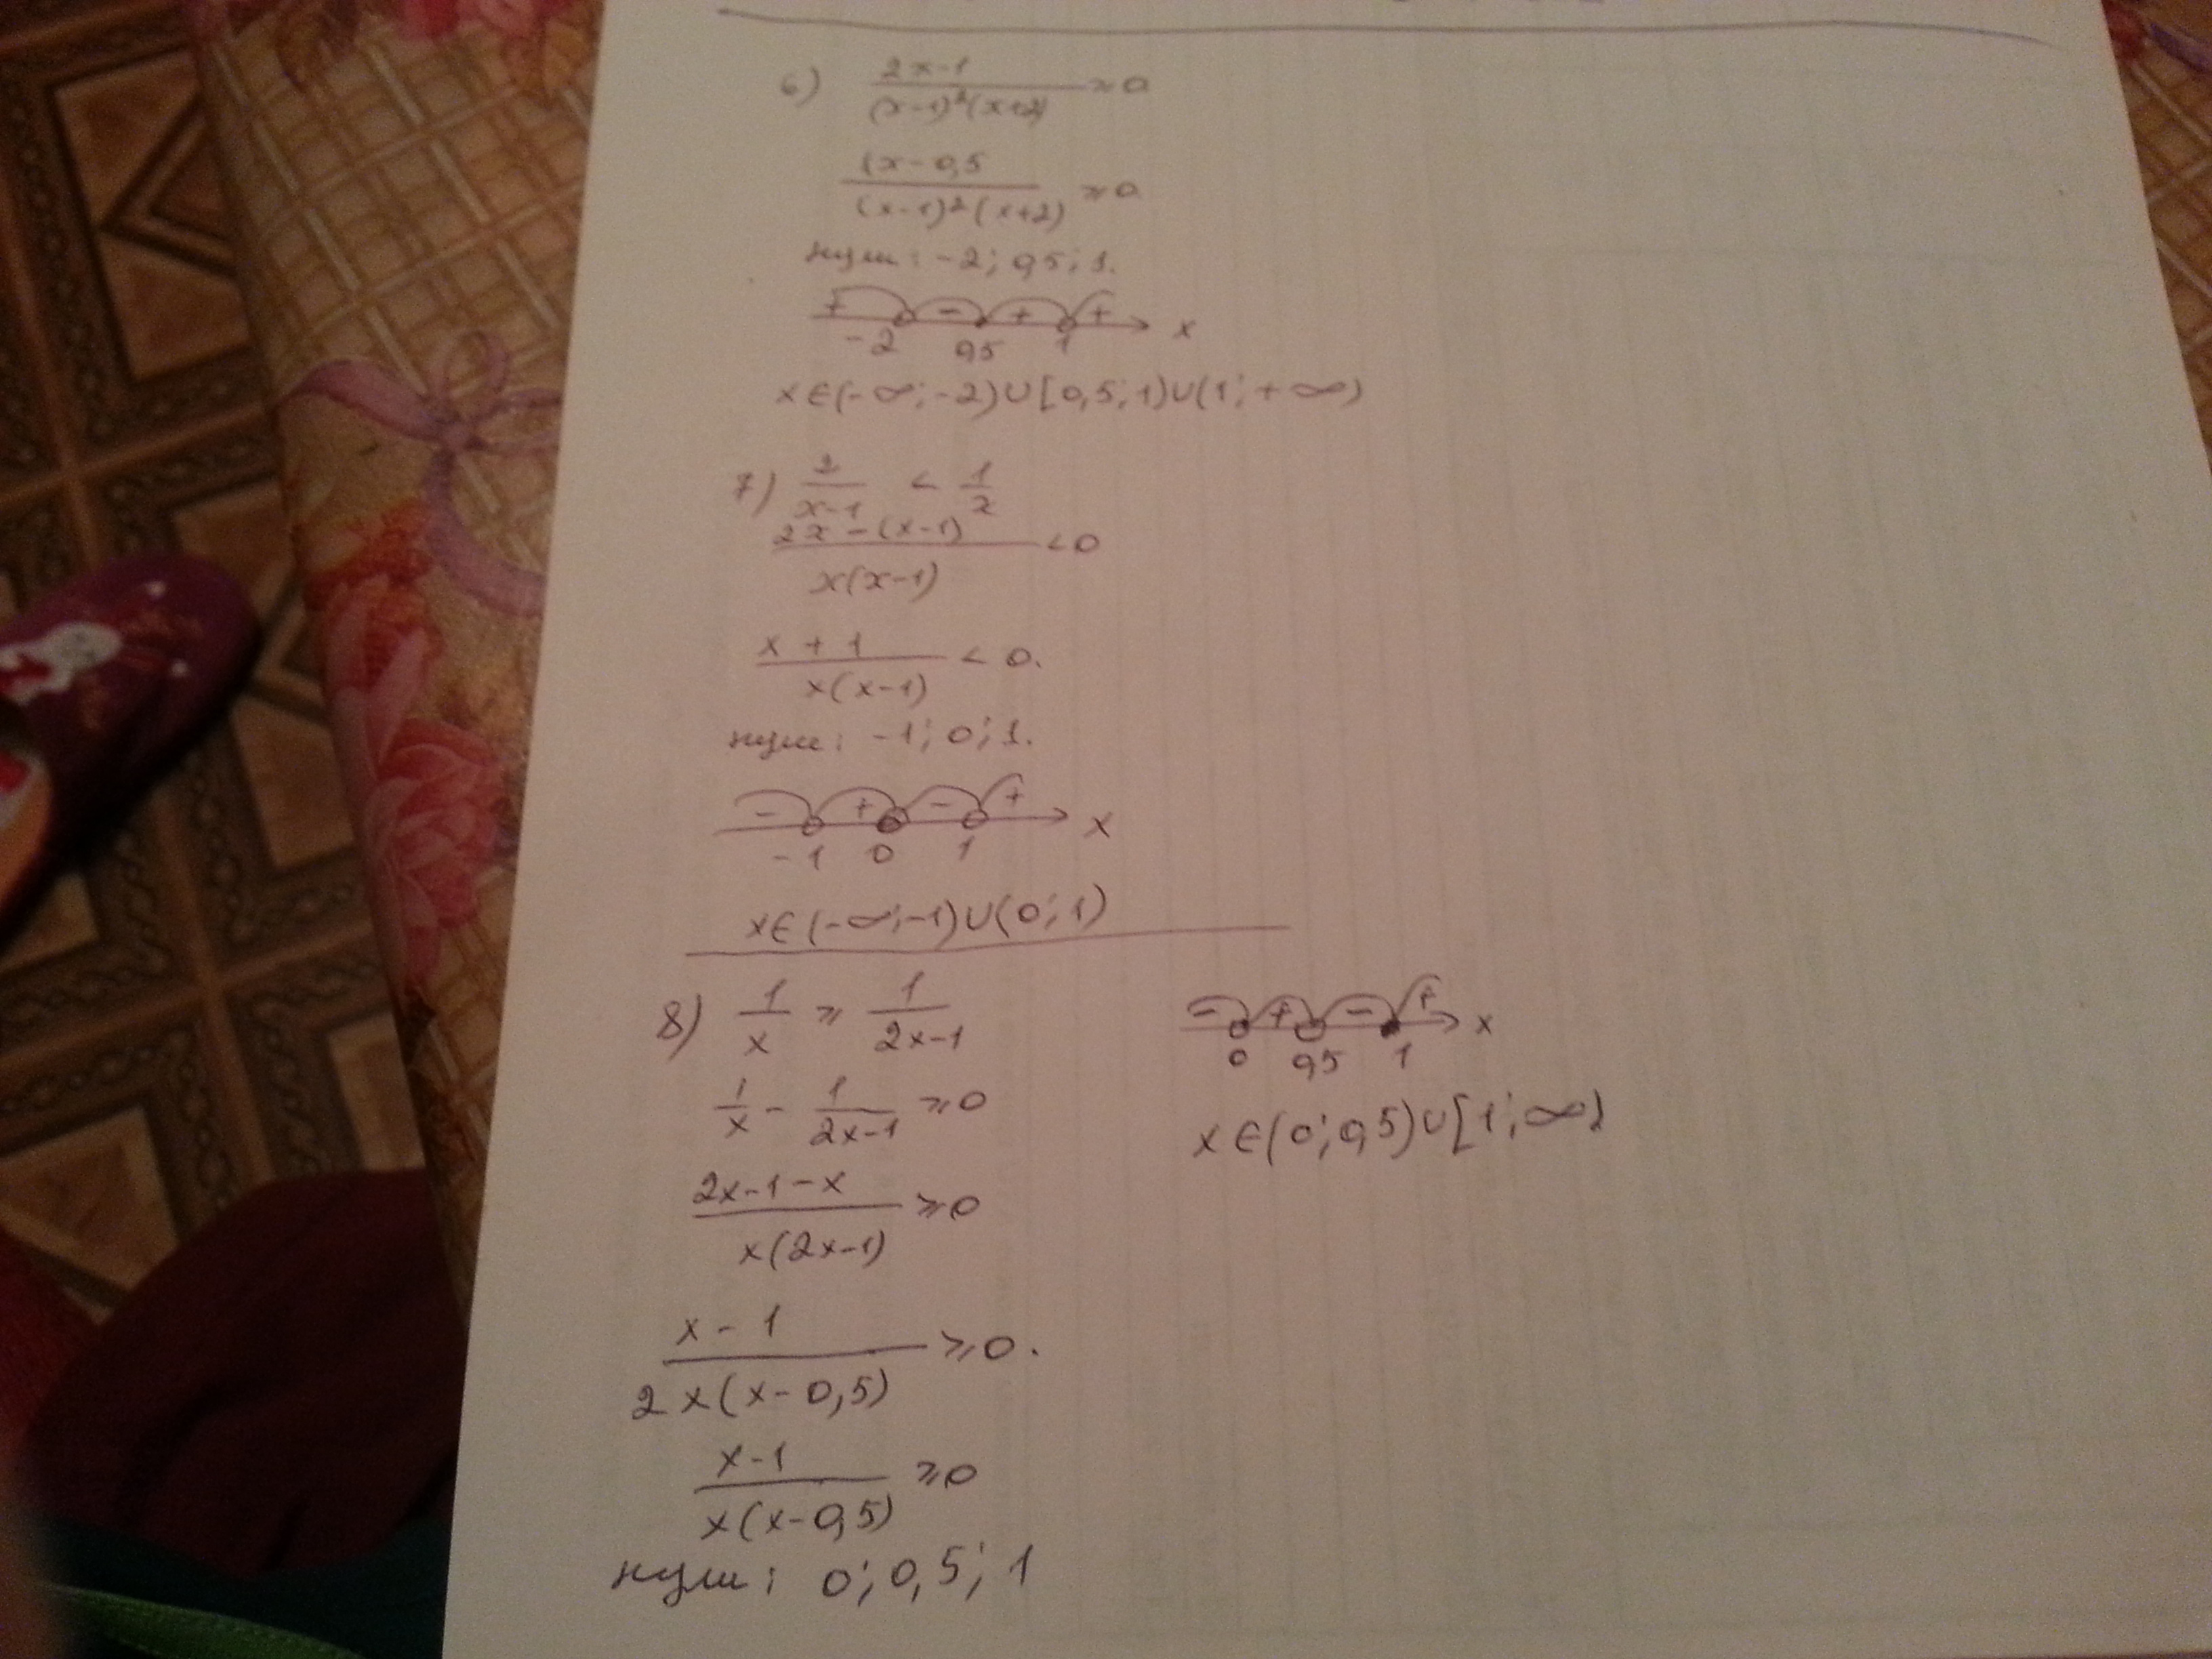 6) (2x-1)/((x-1)²(x+2)) ≥ 0
(x-0,5/((x-1)²(x+2)) ≥ 0
нули: -2; 0,5; 1.
+ - + + x
-2 0,5 1
x∈(-∞;-2)∪[0,5;1)∪(1;+∞)
7) 2/(x-1) < 1/x
(2x-(x-1))/(x(x-1)) < 0
(x+1)/(x(x-1)) < 0.
нули: -1; 0; 1.
- + - + x
-1 0 1
x∈(-∞;-1)∪(0;1)
8) 1/x ≥ 1/(2x-1)
1/x - 1/(2x-1) ≥ 0
(2x-1-x)/(x(2x-1)) ≥ 0
(x-1)/(2x(x-0,5)) ≥ 0.
(x-1)/(x(x-0,5)) ≥ 0
нули: 0; 0,5; 1
- + - + x
0 0,5 1
x∈(0;0,5)∪[1;∞)